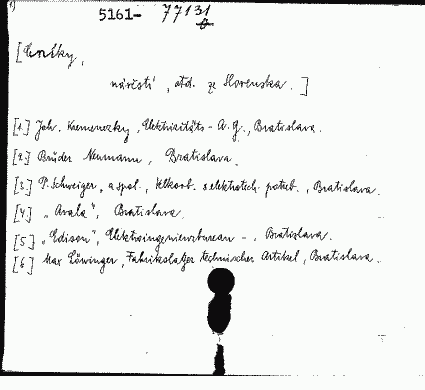 5161- 77131
[Cedky,
návěstí, atd. ze Slovenska.]
[1.] Joh. Kremenezky, Elektrizitäts-A.G., Bratislava.
[2.] Brüder Neumann, Bratislava.
[3.] P. Schweiger, a spol., velkoob. s elektrotech. potřeb., Bratislava.
[4.] „Avala", Bratislava.
[5] „Edison", Elektroingenieurbureau -, Bratislava.
[6] Max Löwinger, Fabrikslager technischer Artikel, Bratislava.